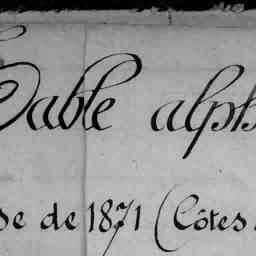 Table alph
se de 1871 (Côtes